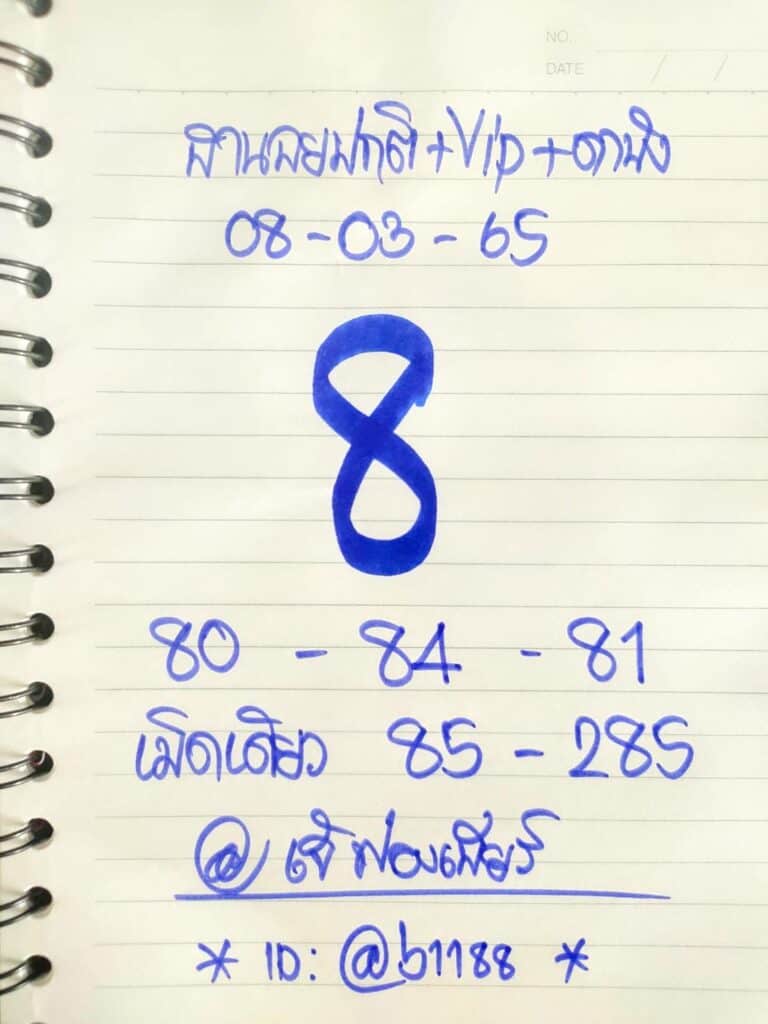 NO.
DATE / /
ฮานอยปกติ+Vip+
08-03-65
8
80 - 84 - 81
เม็ดเดียว 85 - 285
@ เจ๊ฟองเบียร์
* ID: @b1188 *